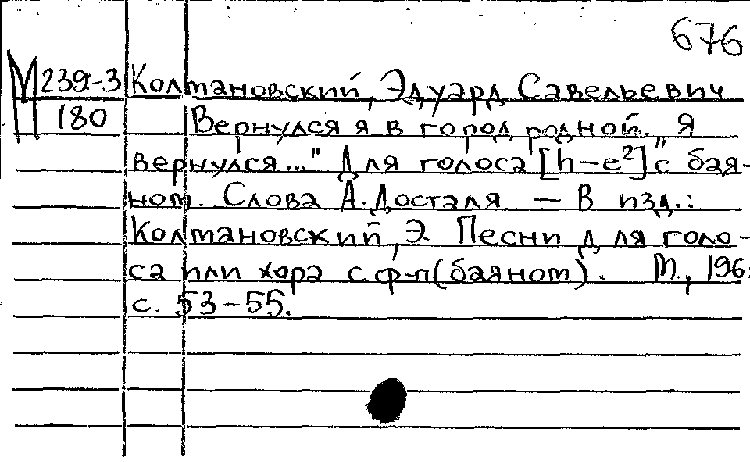 676
М 239-3 Колмановский, Эдуард Савельевич
180 Вернулся я в город родной. "Я
вернулся..." Для голоса [h-e²] с бая-
ном. Слова А. Досталя — В изд.:
Колмановский, Э. Песни для голо-
са или хора с ф-п (баяном). М., 196
с. 53-55.